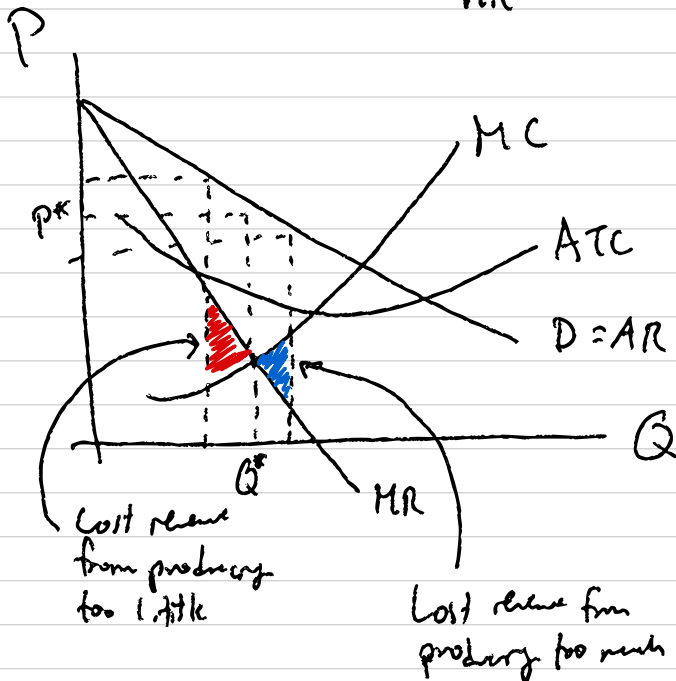 P
MC
P*
ATC
D = AR
Q
Q*
MR
Lost revenue
from producing
too little
Lost revenue from
producing too much